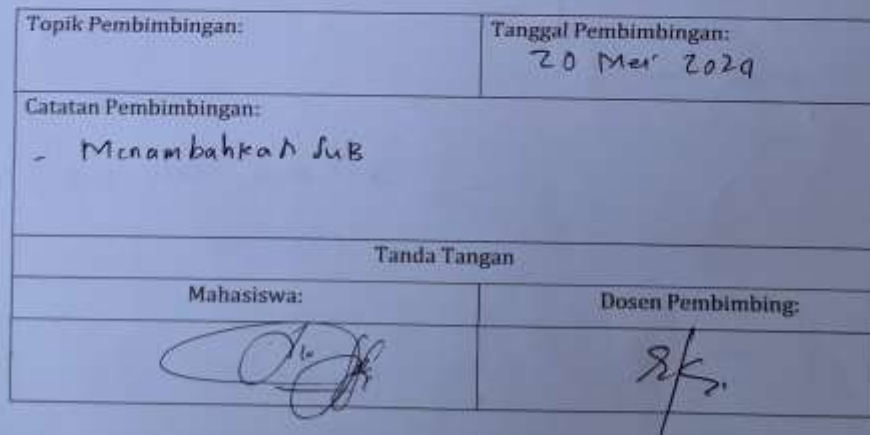 Topik Pembimbingan:
Tanggal Pembimbingan:
20 Mei 2024
Catatan Pembimbingan:
- Menambahkan Sub
Tanda Tangan
Mahasiswa:
Dosen Pembimbing: